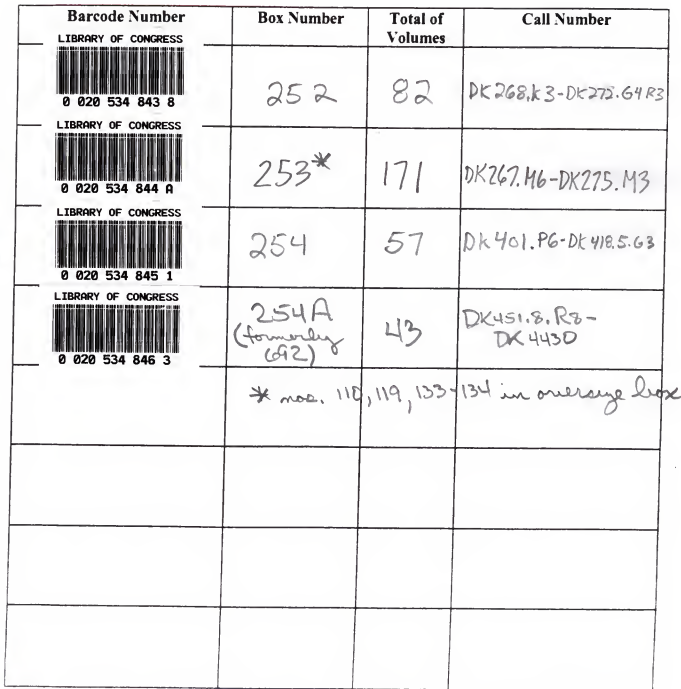 Barcode Number Box Number Total of Volumes Call Number
LIBRARY OF CONGRESS
0 020 534 843 8
252 82 DK268.K3-DK272.G4R3
LIBRARY OF CONGRESS
0 020 534 844 A
253* 171 DK267.M6-DK275.M3
LIBRARY OF CONGRESS
0 020 534 845 1
254 57 DK401.P6-DK418.5.G3
LIBRARY OF CONGRESS
0 020 534 846 3
254A (formerly 692) 43 DK451.8.R8-
DK4430
* nos. 110, 119, 133-134 in oversize box